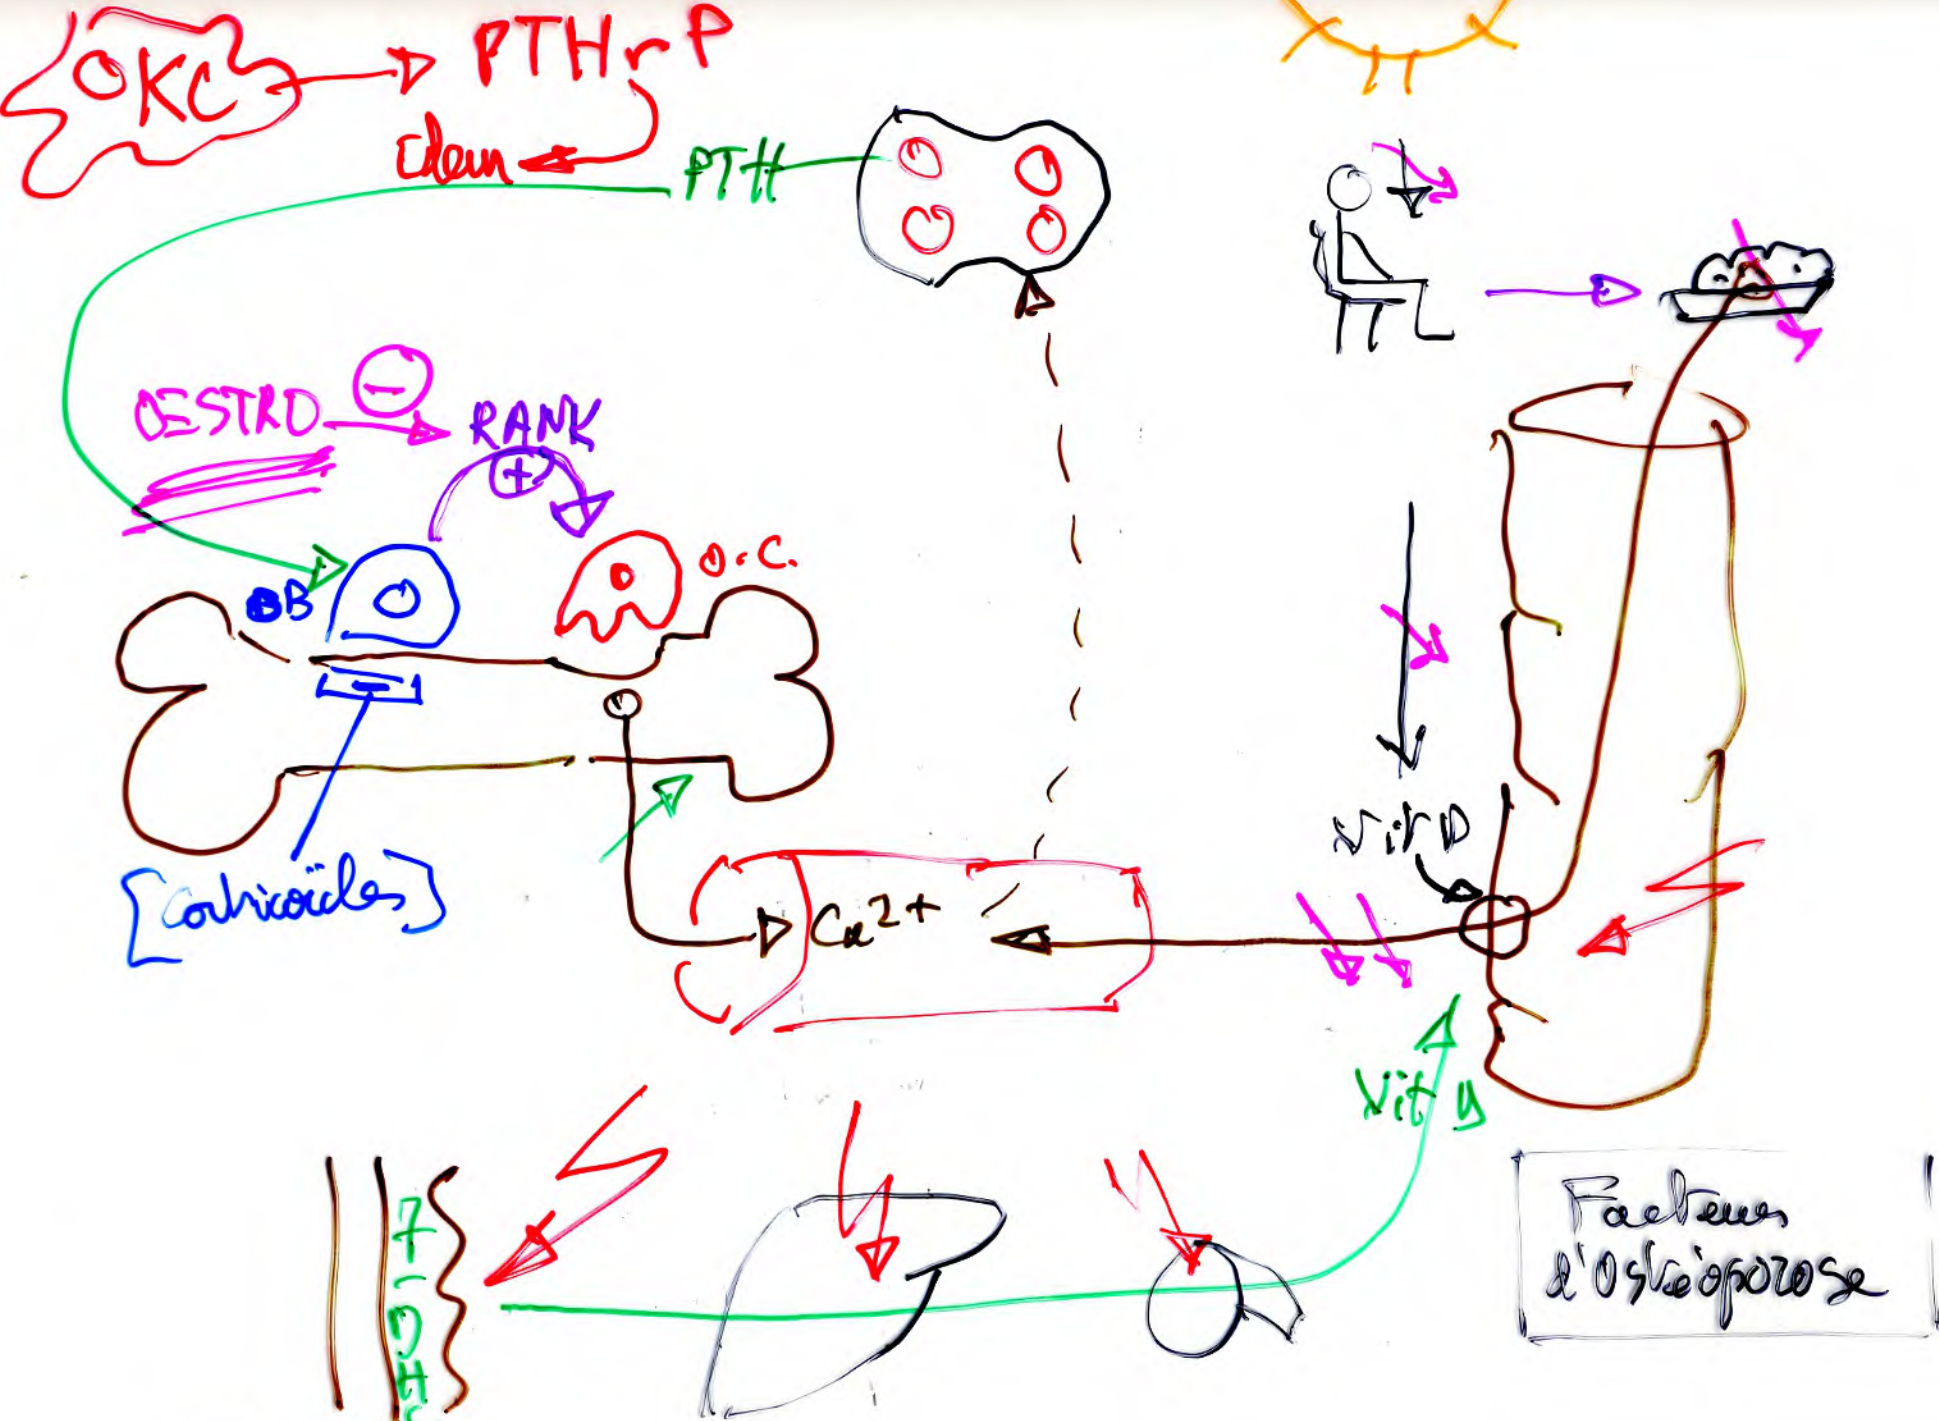 OKC
PTHrP
idem
PTH
OESTRO
−
RANK
+
OB
O.C.
−
[Corticoïdes]
Ca2+
Vit D
Vit D
7-DHC
Facteurs
d'Ostéoporose